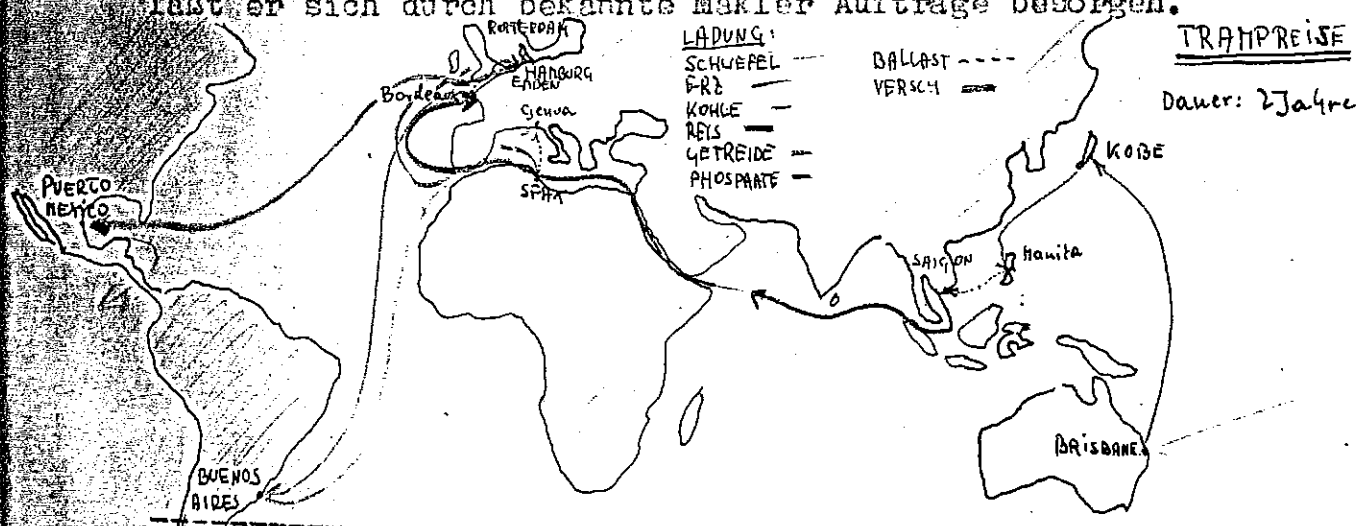 läßt er sich durch bekannte Makler Aufträge besorgen.
TRAMPREISE
Dauer: 2 Jahre
LADUNG:
SCHWEFEL
ERZ
KOHLE
REIS
GETREIDE
PHOSPHATE
BALLAST
VERSCH
ROTTERDAM
HAMBURG
EMDEN
Bordeaux
Genua
SFAX
PUERTO
MEXICO
BUENOS
AIRES
KOBE
SAIGON
Manila
BRISBANE